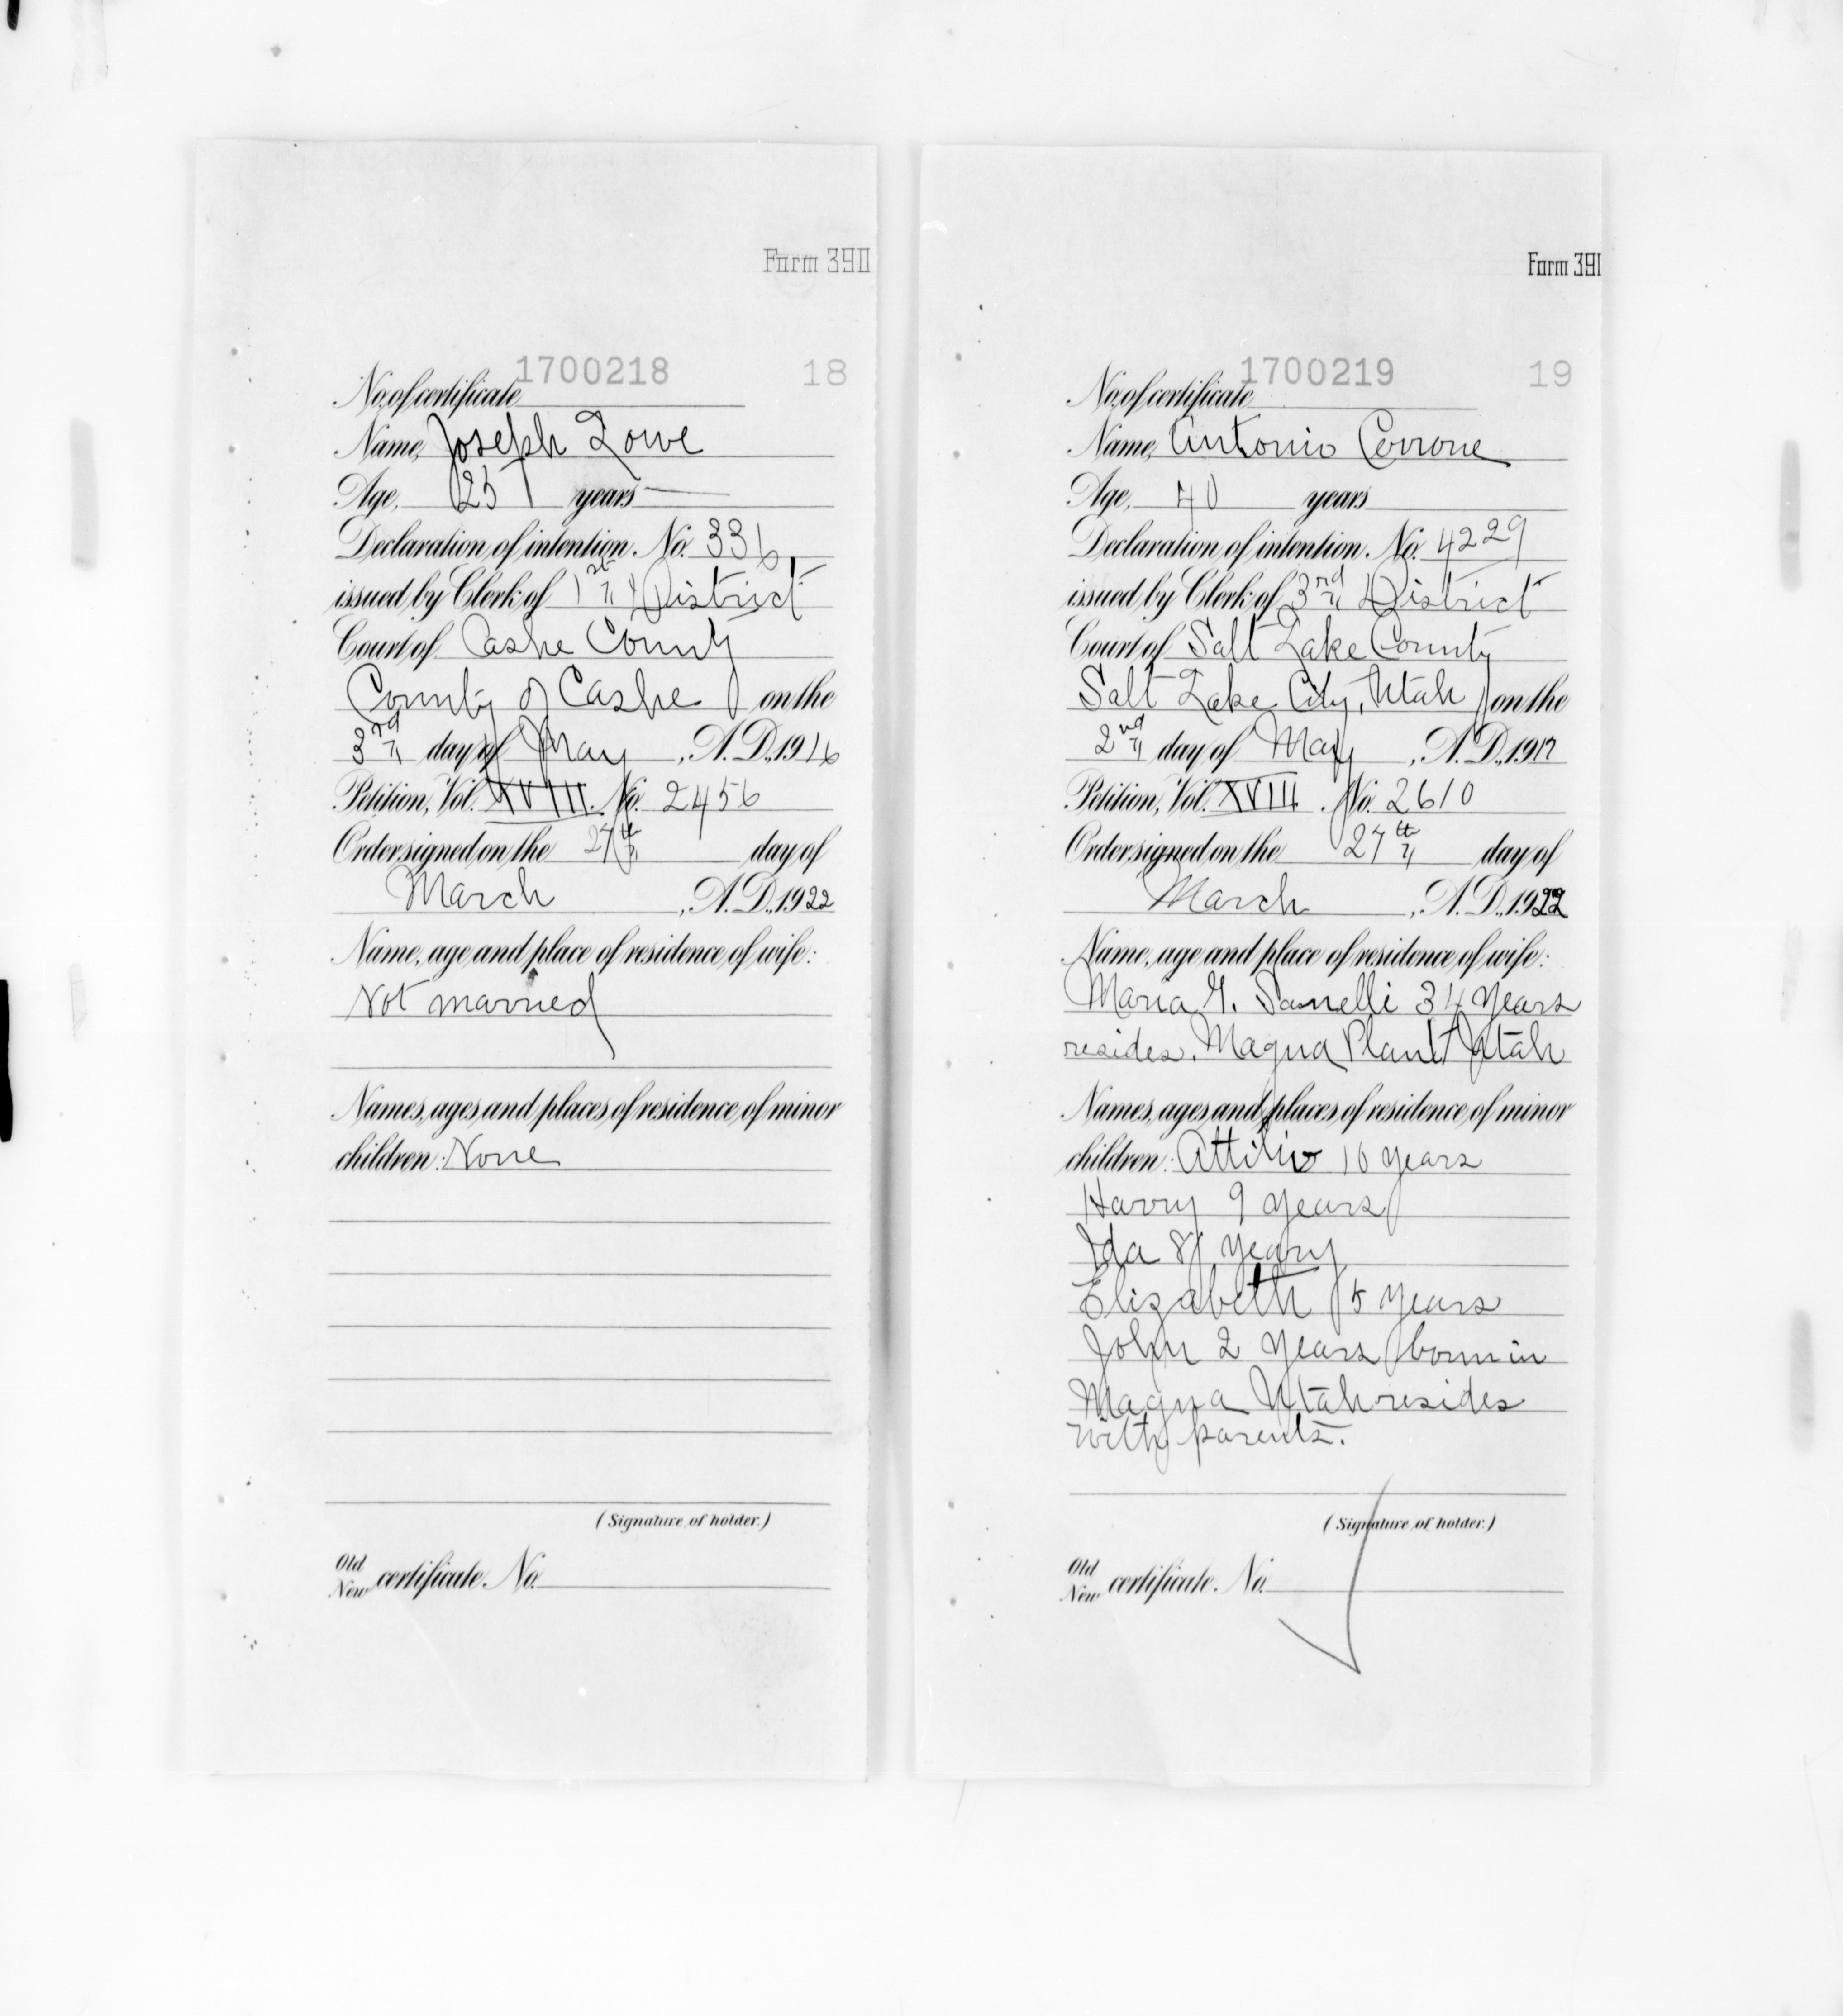 Form 390
1700218 18
No. of certificate
Name, Joseph Lowe
Age, 25 years
Declaration of intention. No. 336,
issued by Clerk of 1st District
Court of Cashe County
County of Cashe on the
3rd day of May, A.D., 1916
Petition, Vol. XVIII. No. 2456
Order signed on the 27th day of
March, A.D., 1922
Name, age and place of residence of wife:
Not married
Names, ages and places of residence of minor
children: None
(Signature of holder.)
Old
New certificate. No.
Form 391
1700219 19
No. of certificate
Name, Antonio Cerrone
Age, 40 years
Declaration of intention. No. 4229
issued by Clerk of 3rd District
Court of Salt Lake County
Salt Lake City, Utah on the
2nd day of May, A.D., 1917
Petition, Vol. XVIII. No. 2610
Order signed on the 27th day of
March, A.D., 1922
Name, age and place of residence of wife:
Maria G. 34 years
resides. Magna Plant Utah
Names, ages and places of residence of minor
children: Attilio 10 years
Harry 9 years
Ida 8 years
Elizabeth 5 years
John 2 years born in
Magna Utah resides
with parents.
(Signature of holder.)
Old
New certificate. No.